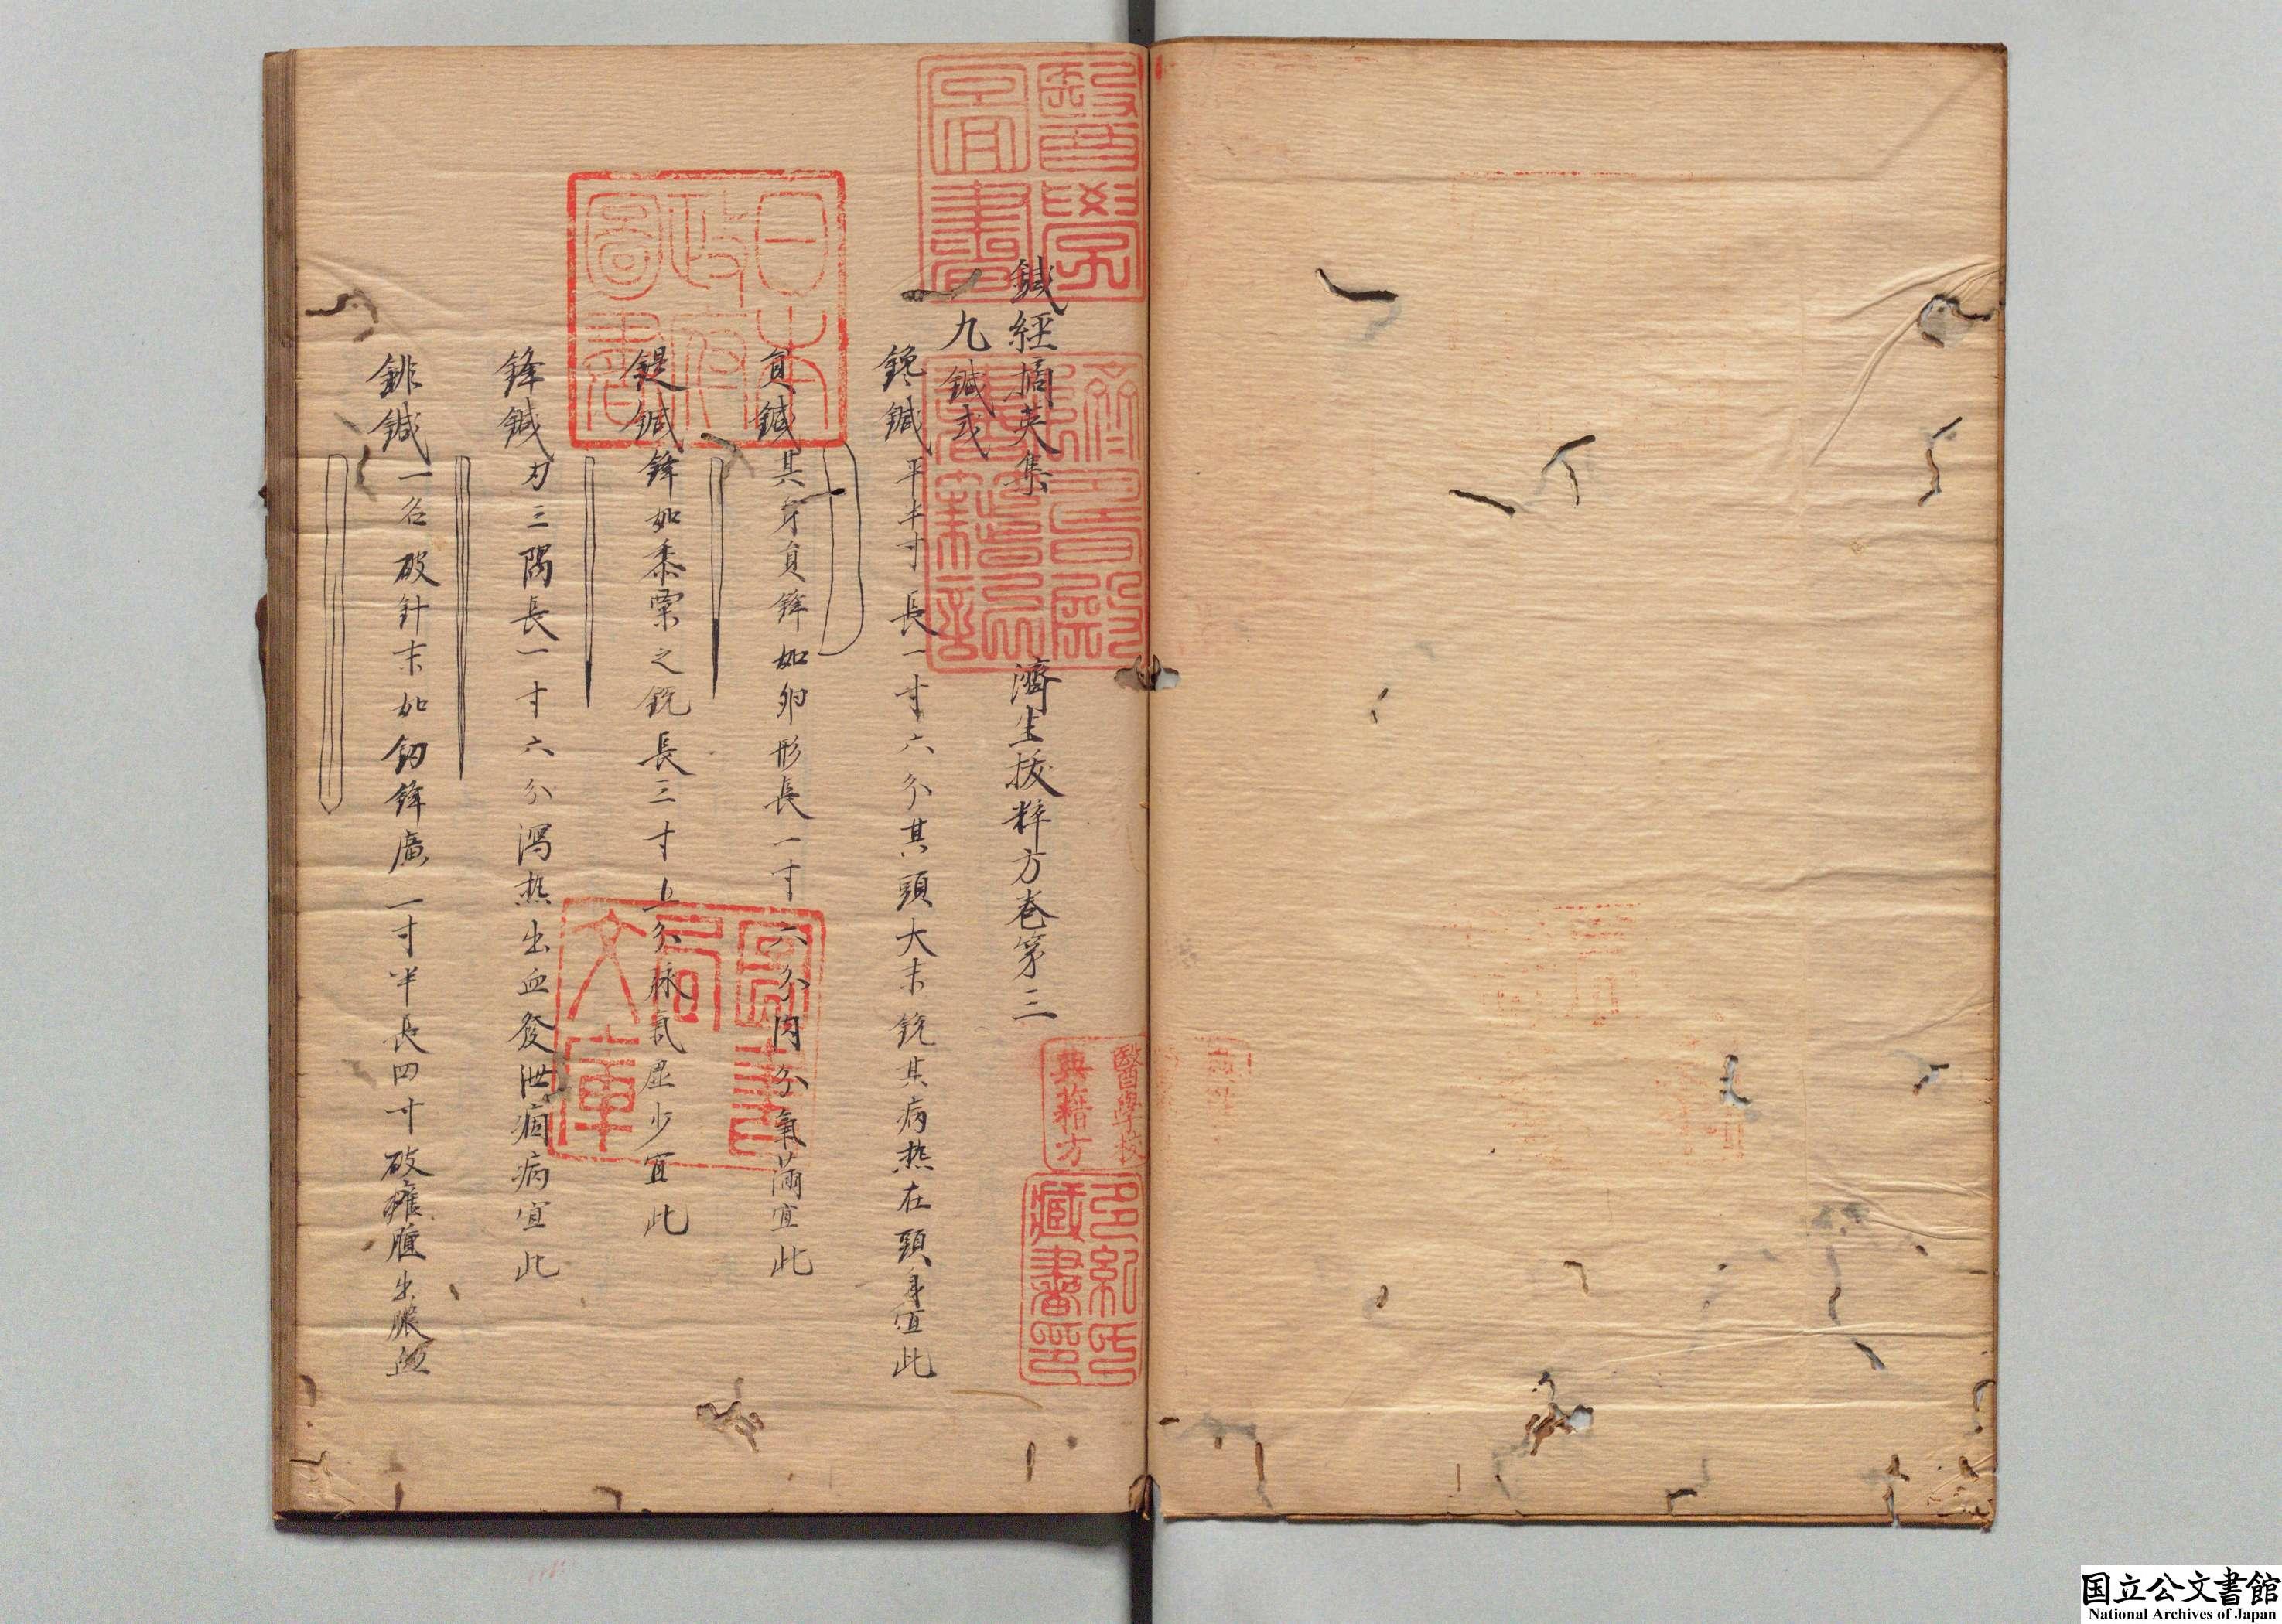 鍼経摘英集　濟生拔粹方巻第三
九鍼式
鑱鍼平半寸長一寸六分其頭大末銳其病热在頭身宜此
員鍼其身員鋒如卵形長一寸六分肉分氣滿宜此
鍉鍼鋒如黍粟之銳長三寸五分脉氣虛少宜此
鋒鍼刃三隅長一寸六分瀉热出血發泄痼病宜此
鈹鍼一名破針末如釰鋒廣一寸半長四寸破癰腫出膿血
醫學圖書
躋壽殿書籍記
日本政府圖書
秘閣圖書
醫學校典籍方
多紀氏藏書印
国立公文書館
National Archives of Japan